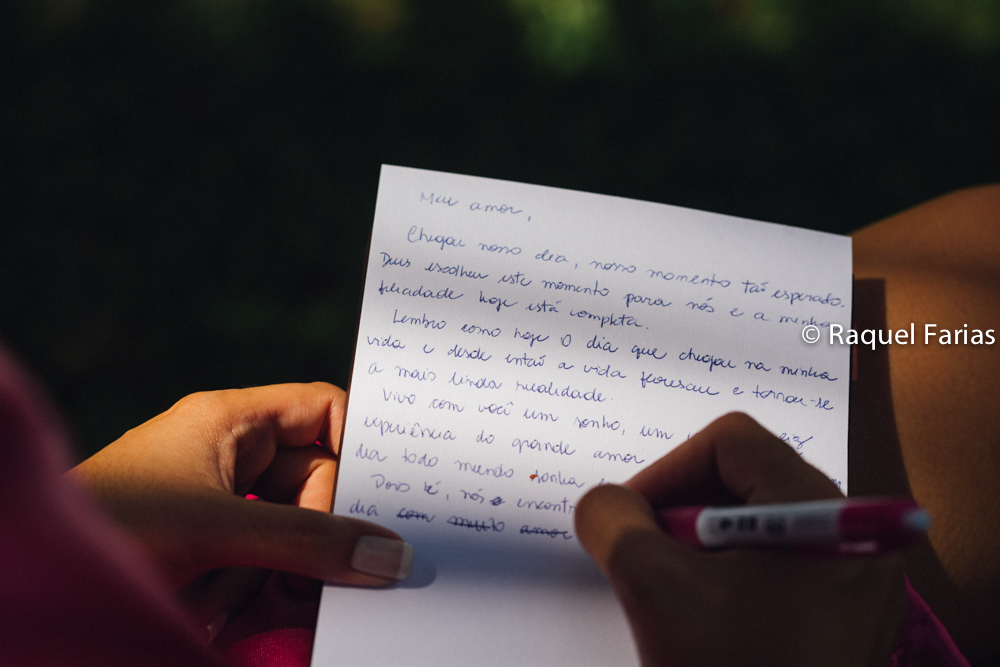 Meu amor,
Chegou nosso dia, nosso momento tão esperado.
Deus escolheu este momento para nós e a minha
felicidade hoje está completa.
Lembro como hoje o dia que chegou na minha
vida e desde então a vida floresceu e tornou-se
a mais linda realidade.
Vivo com você um sonho, um
experiência do grande amor
dia todo mundo sonha
Pois é, nós encontr
dia com muito amor
© Raquel Farias